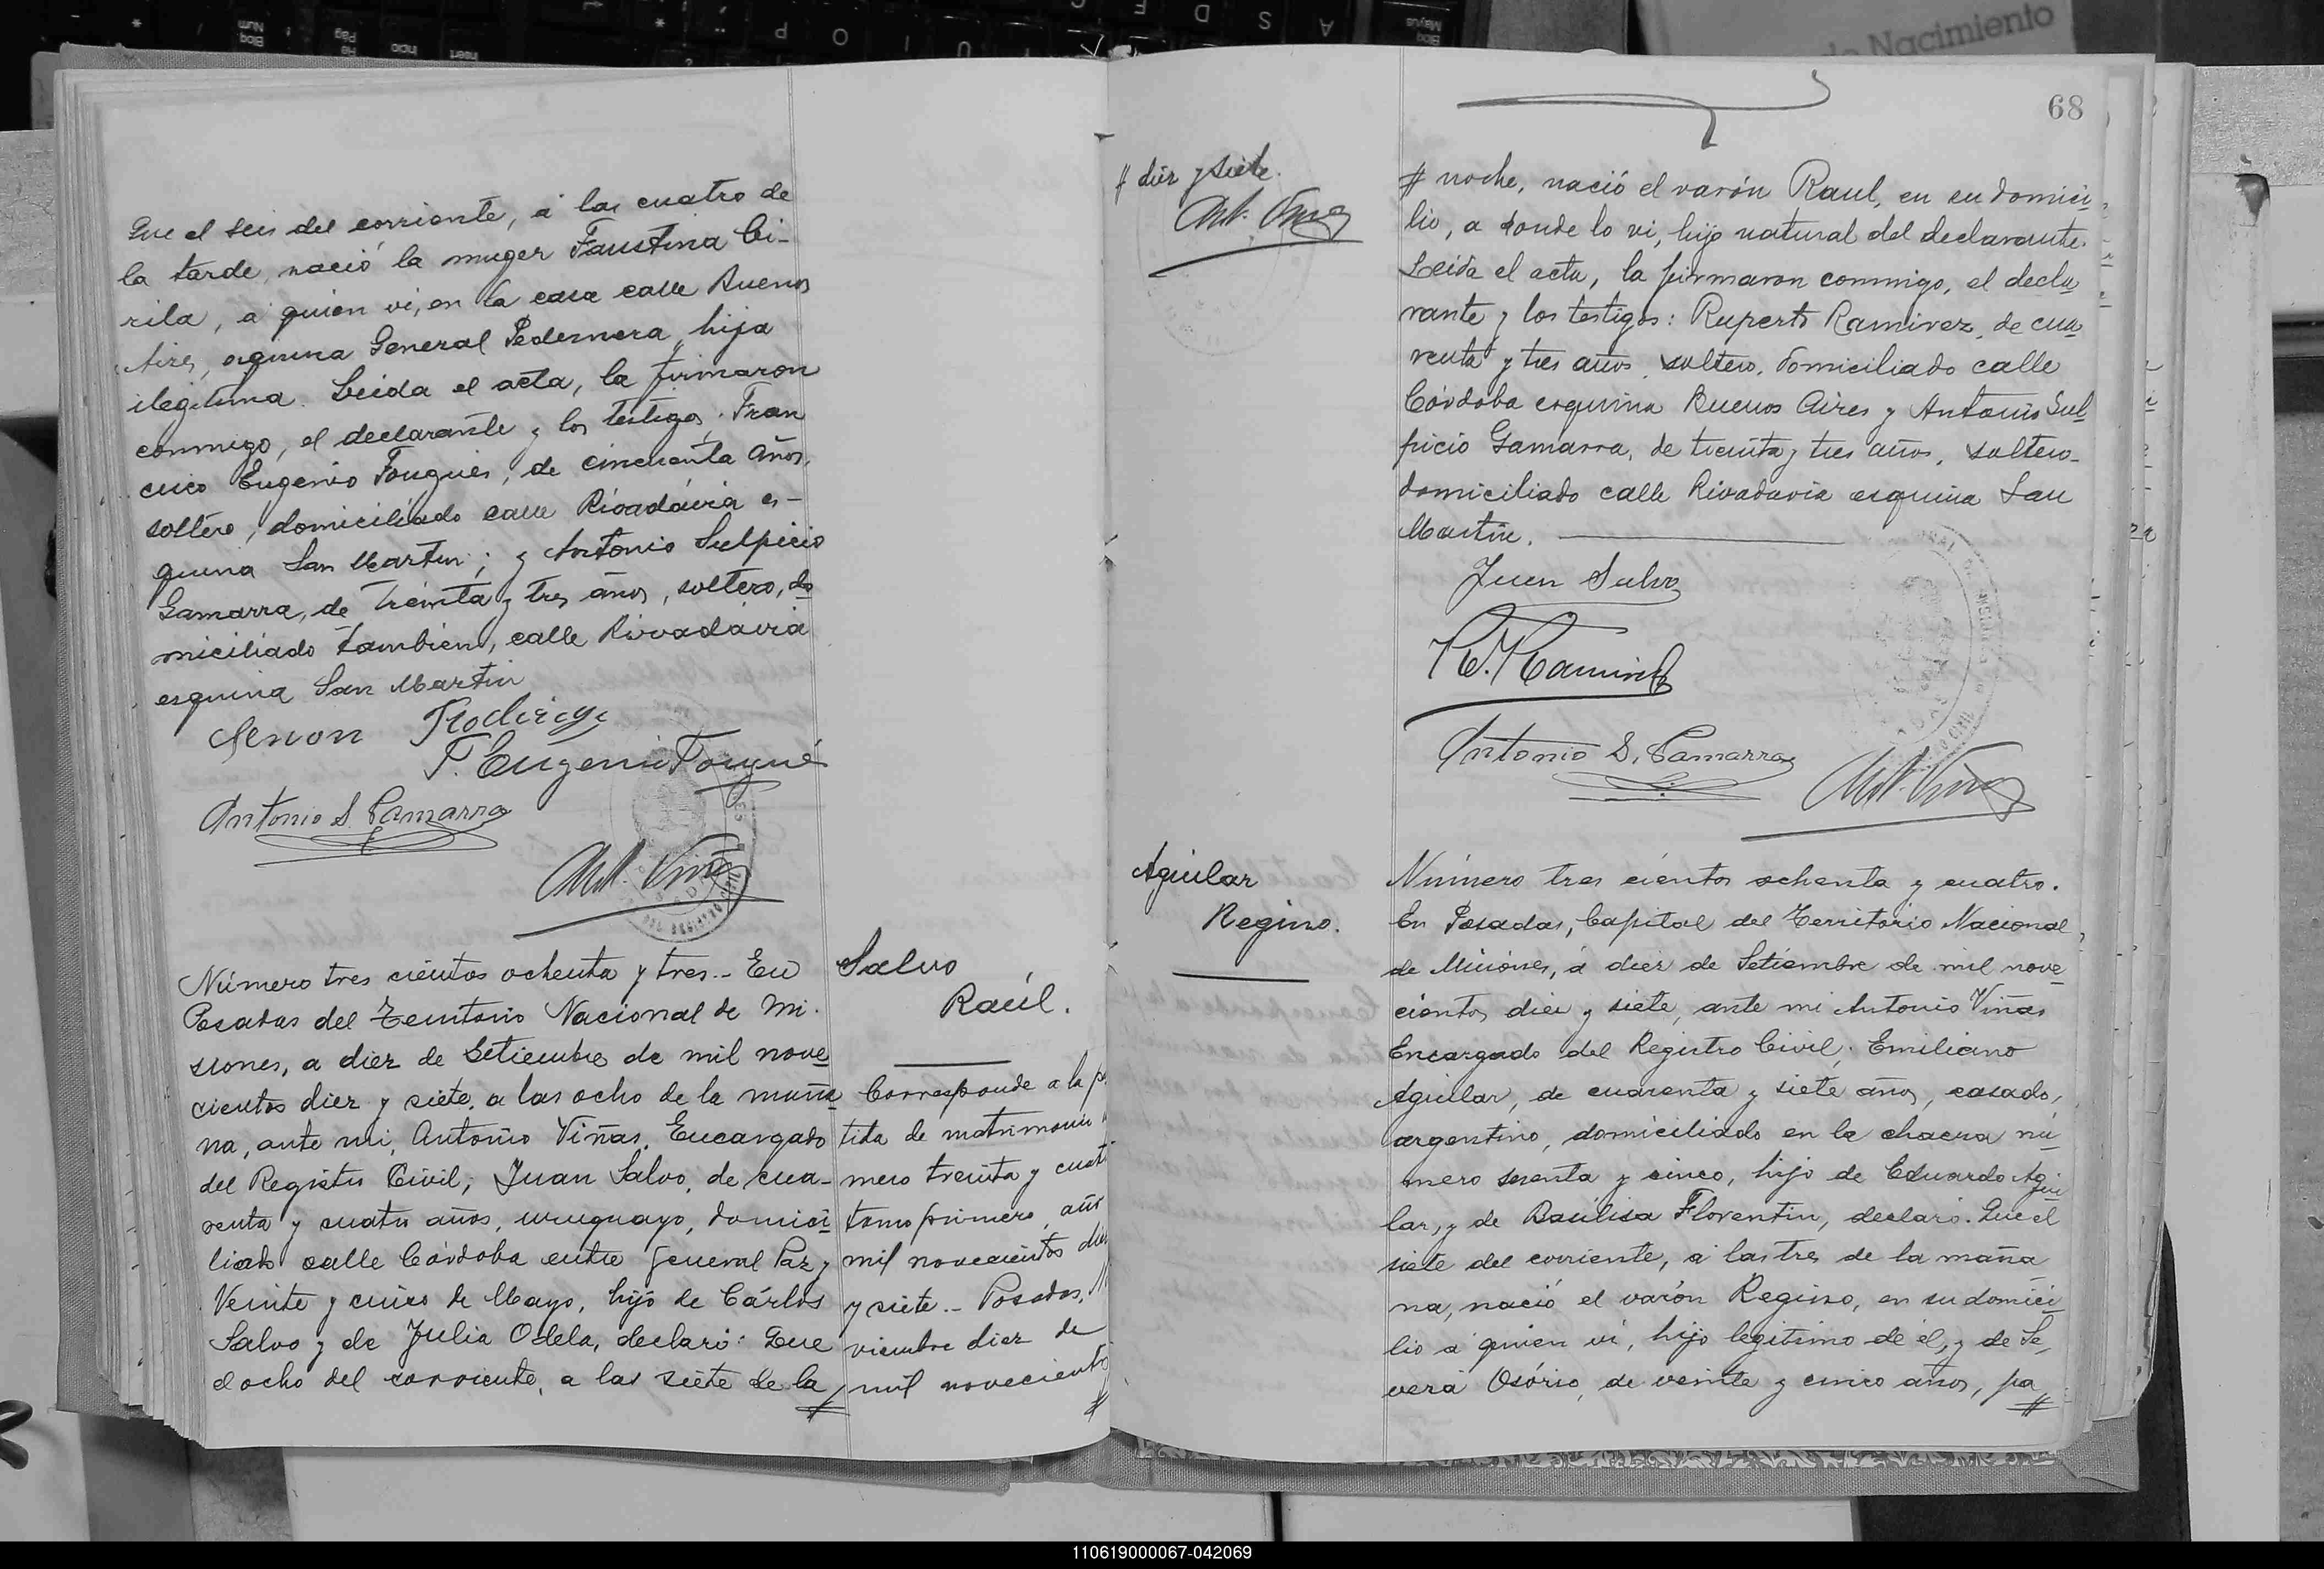 Que el seis del corriente, á las cuatro de
la tarde, nació la muger Faustina Ci-
rila, á quien vi, en la casa calle Buenos
Aires, esquina General Pedernera, hija
ilegitima. Leida el acta, la firmaron
conmigo, el declarante y los testigos: Fran
cisco Eugenio Fouguès, de cincuenta años,
soltero, domiciliado calle Rivadávia es-
quina San Martin; y Antonio Sulpicio
Gamarra, de treinta y tres años, soltero, do
miciliado tambien, calle Rivadávia
esquina San Martin
Senon Rodrigz
F. Eugenio Fougué
Antonio S. Gamarra
Ant. Viñas
Número tres cientos ochenta y tres.- En
Posadas del Territorio Nacional de Mi-
siones, a diez de Setiembre de mil nove
cientos diez y siete, a las ocho de la maña
na, ante mi, Antonio Viñas, Encargado
del Registro Civil; Juan Salvo, de cua-
renta y cuatro años, uruguayo, domici
liado calle Córdoba entre General Paz y
Veinte y cinco de Mayo, hijo de Cárlos
Salvo y de Julia Odela, declaró: Que
el ocho del corriente, a las siete de la
#
Salvo
Raúl.
Corresponde a la p
tida de matrimonio
mero treinta y cuat
tomo primero, añ
mil novecientos diez
y siete.- Posadas,
viembre diez de
mil novecientos
#
68
# diez y siete.
Ant. Viñas
# noche, nació el varón Raul, en su domici
lio, a donde lo vi, hijo natural del declarante.
Leida el acta, la firmaron conmigo, el decla
rante y los testigos: Ruperto Ramirez, de cua
renta y tres años, soltero, domiciliado calle
Córdoba esquina Buenos Aires y Antonio Sul
picio Gamarra, de treinta y tres años, soltero
domiciliado calle Rivadavia esquina San
Martin.
Juan Salvo
R. Ramirez
Antonio S. Gamarra
Ant. Viñas
Aguilar
Regino.
Número tres cientos ochenta y cuatro.
En Posadas, Capital del Territorio Nacional
de Misiones, á diez de Setiembre de mil nove
cientos diez y siete, ante mi Antonio Viñas
Encargado del Registro Civil; Emiliano
Aguilar, de cuarenta y siete años, casado,
argentino, domiciliado en la chacra nú
mero senta y cinco, hijo de Eduardo Agui
lar, y de Basilisa Florentin, declaró: Que el
siete del corriente, á las tres de la maña
na, nació el varón Regino, en su domici
lio á quien vi, hijo legitimo de él, y de Se
vera Osório, de veinte y cinco años, pa
#
de Nacimiento
110619000067-042069